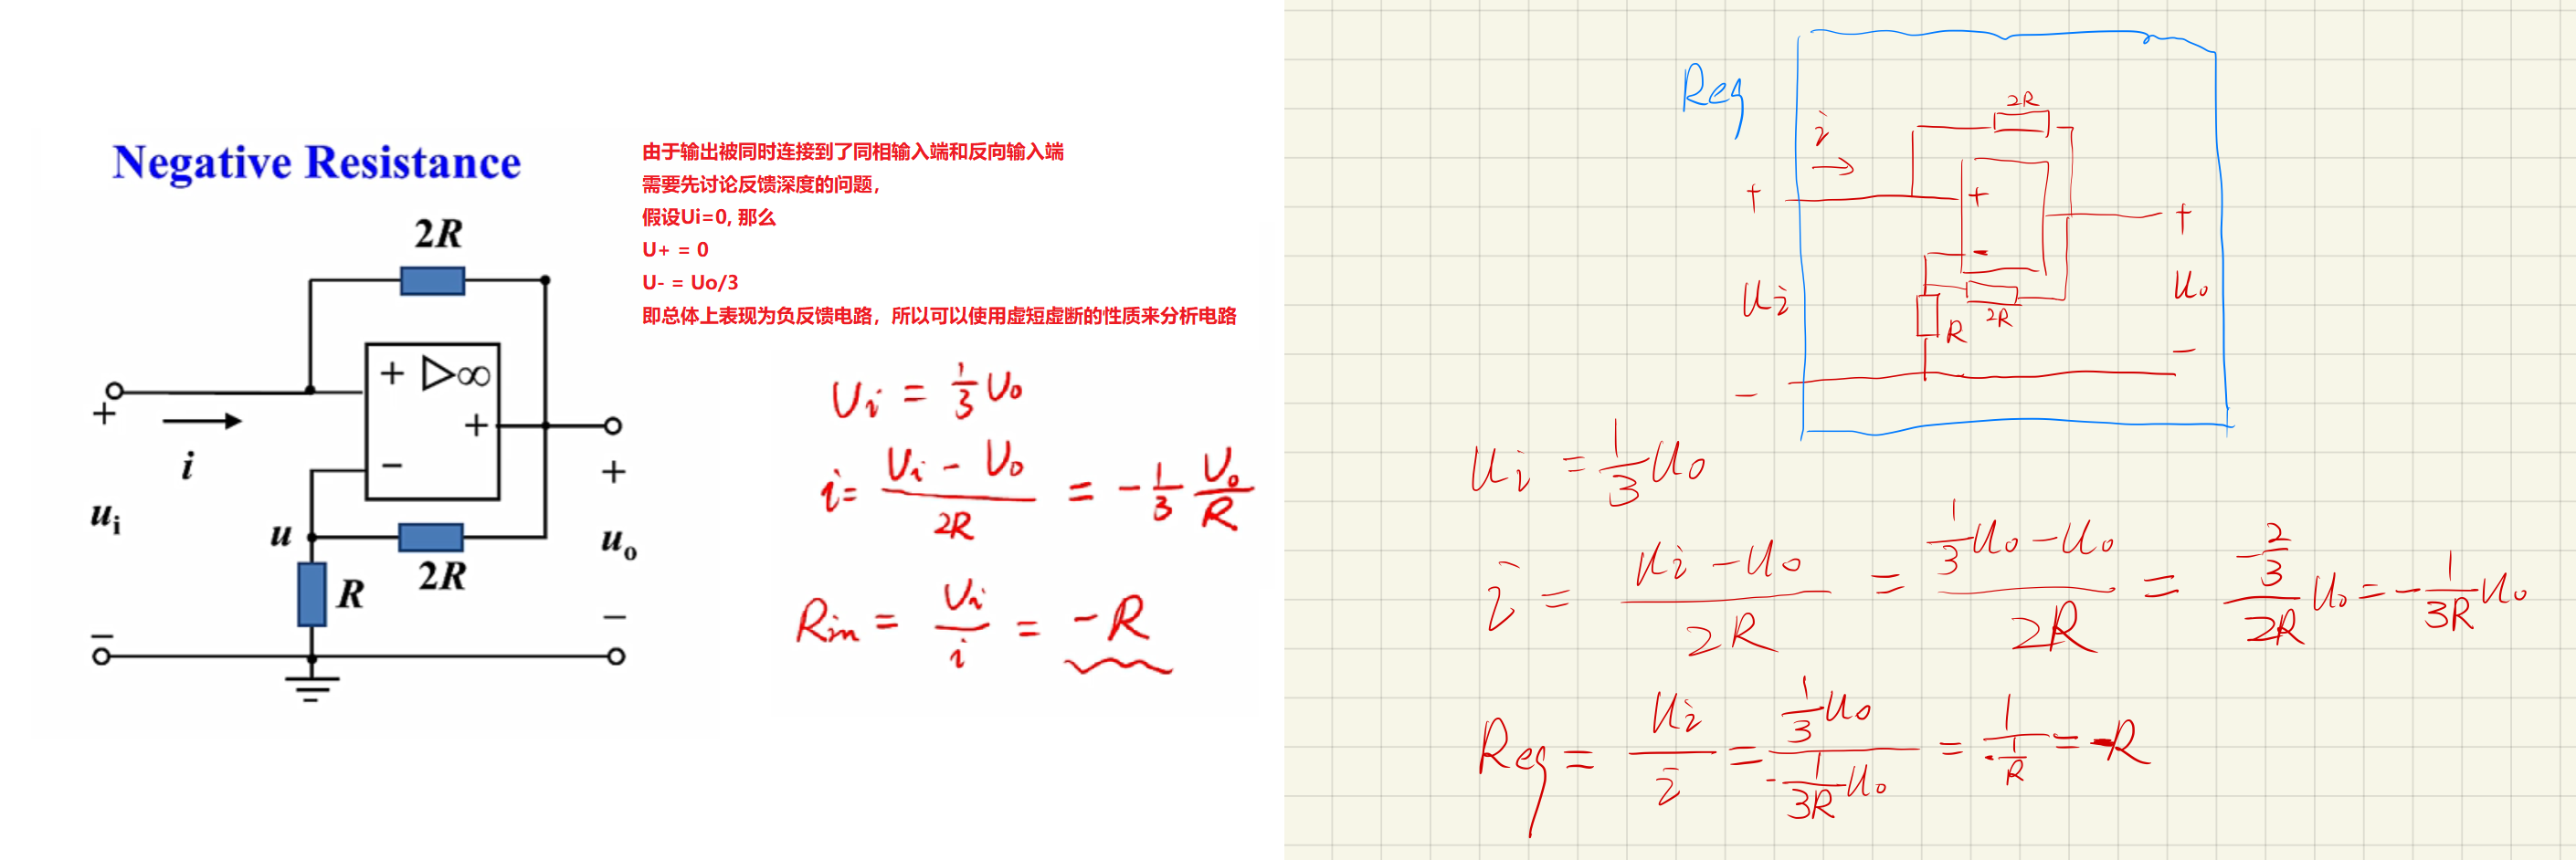 Negative Resistance
2R
+ ▷∞
+
+
−
i
+
ui
u
2R
R
uo
−
−
由于输出被同时连接到了同相输入端和反向输入端
需要先讨论反馈深度的问题，
假设Ui=0, 那么
U+ = 0
U- = Uo/3
即总体上表现为负反馈电路，所以可以使用虚短虚断的性质来分析电路
Ui = 1/3 Uo
i = (Ui - Uo)/2R = -1/3 Uo/R
Rin = Ui/i = -R
Req
2R
i
+
+
+
-
ui
2R
R
uo
-
-
ui = 1/3 uo
i = (ui - uo)/2R = (1/3 uo - uo)/2R = (-2/3)/2R uo = -1/3R uo
Req = ui/i = (1/3 uo)/(-1/3R uo) = 1/(-1/R) = -R